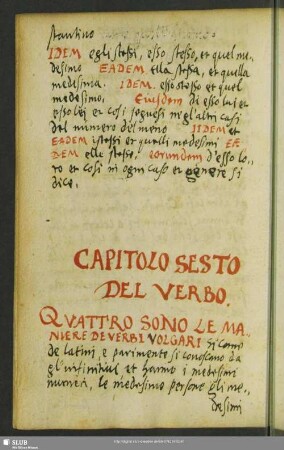 stantino
IDEM egli stessi, esso stesso, et quel me-
desimo EADEM ella stessa, et quella
medesima. IDEM. esso stesso et quel
medesimo, Eiusdem di esso lui et
esso lei et cosi seguesi negl'altri casi
del numero del meno IIDEM et
EADEM istessi et quelli medesimi EÆ
DEM elle stesse. eorundem d'esso lo-
ro et cosi in ogni caso et genere si
dice.
CAPITOLO SESTO
DEL VERBO.
QVATTRO SONO LE MA-
NIERE DE VERBI VOLGARI si come
de latini, e parimente si conoscano da
gl'infinitiui et hanno i medesimi
numeri, le medesime persone gli me-
desimi
SLUB